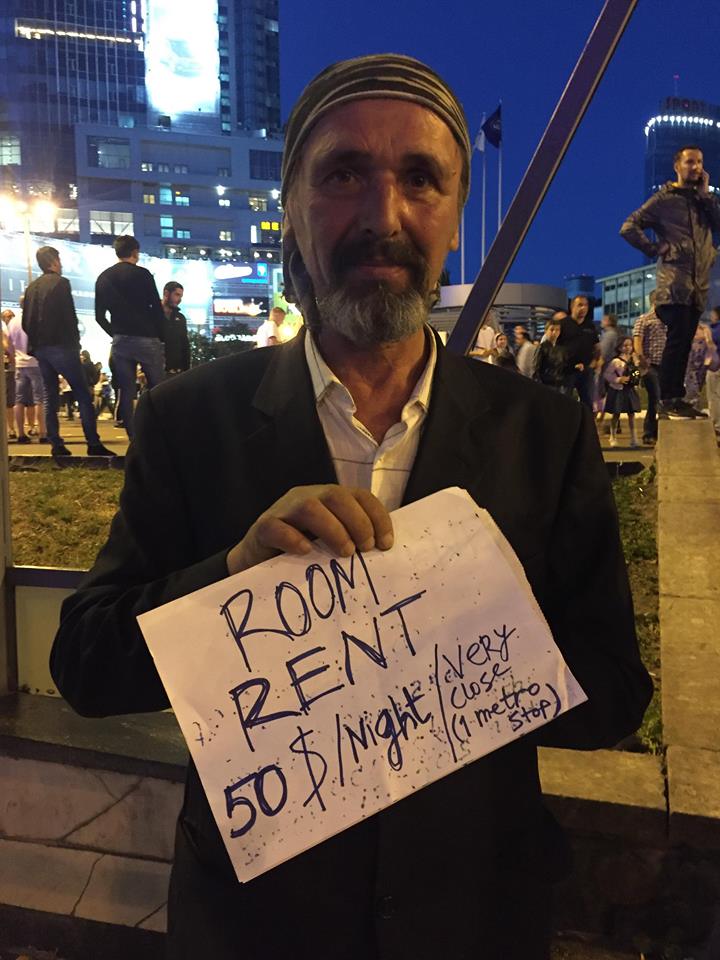 ROOM
RENT
50 $/Night/very
close
(1 metro
stop)
SPORT